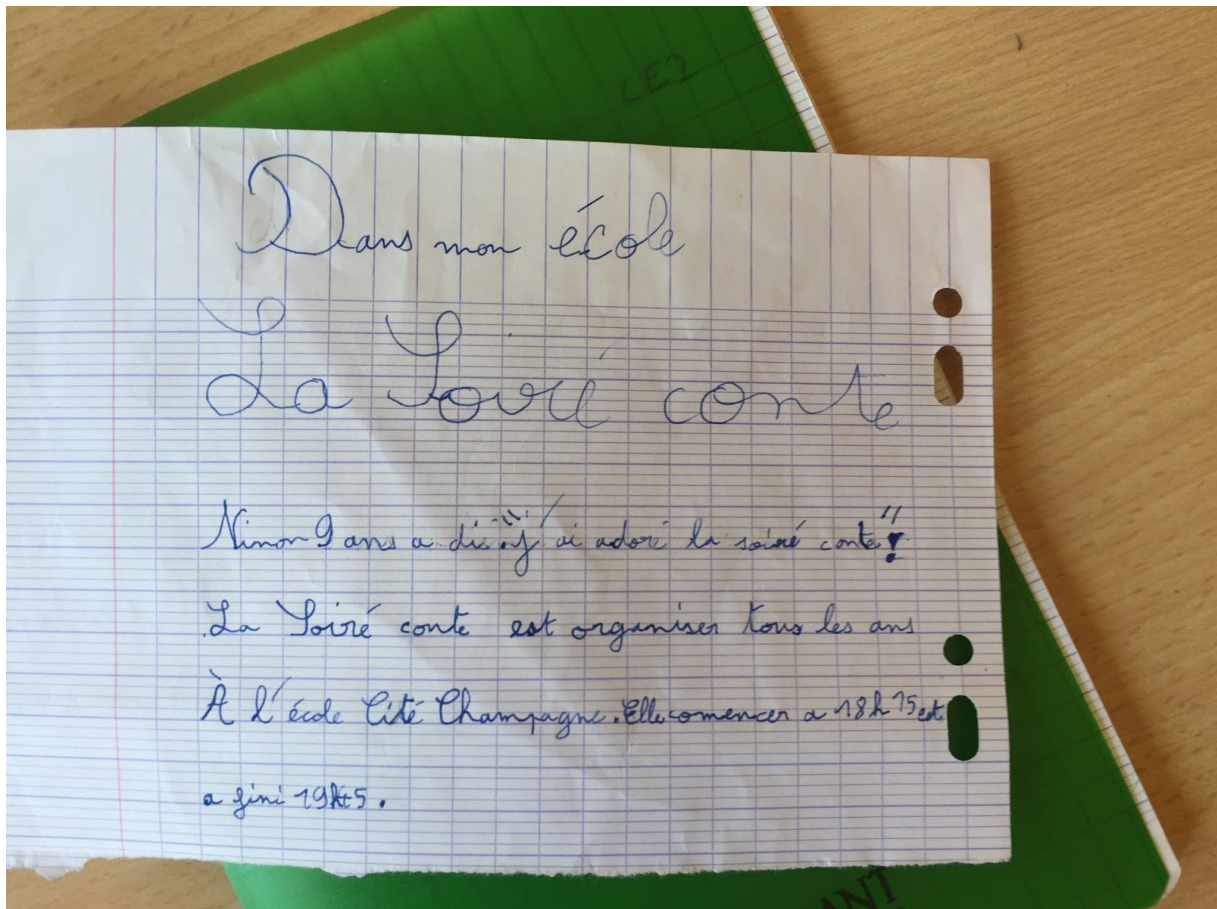 CE2
Dans mon école
La Soiré conte
Ninon 9 ans a di: "j'ai adoré la soiré conte"!
La Soiré conte est organiser tous les ans
À l'école Cité Champagne. Elle comencer a 18h15 est
a fini 19h45.
ANT